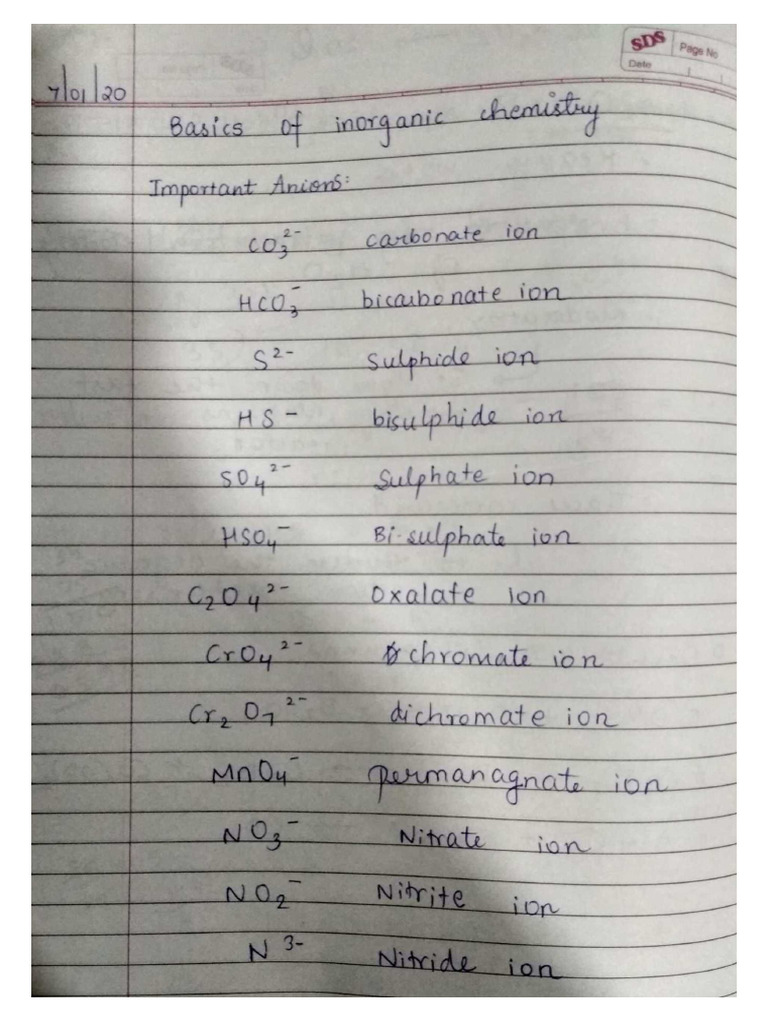 SDS
Page No
Date
7/01/20
Basics of inorganic chemistry
Important Anions:
CO₃²⁻ carbonate ion
HCO₃⁻ bicarbonate ion
S²⁻ Sulphide ion
HS⁻ bisulphide ion
SO₄²⁻ Sulphate ion
HSO₄⁻ Bi-sulphate ion
C₂O₄²⁻ Oxalate Ion
CrO₄²⁻ chromate ion
Cr₂O₇²⁻ dichromate ion
MnO₄⁻ permanagnate ion
NO₃⁻ Nitrate ion
NO₂⁻ Nitrite ion
N³⁻ Nitride ion